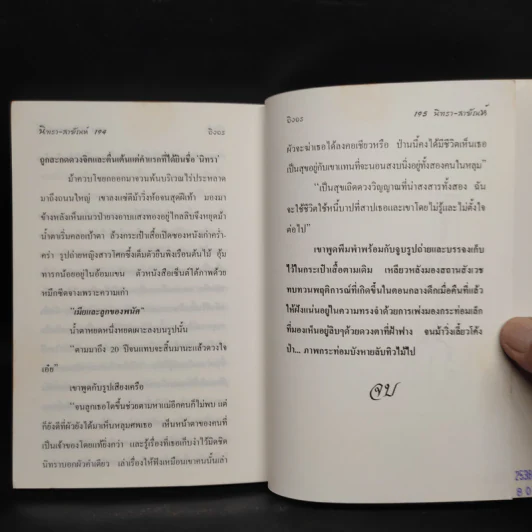 นิทรา-สายัณห์ 194
ปิงอง
ถูกสะกดดวงจิตและตื่นเต้นแต่คำแรกที่ได้ยินชื่อ 'นิทรา'
ม้าควบโขยกออกมาจวนพ้นบริเวณไร่ประหลาด
มาถึงถนนใหญ่ เขาลงแซ่ตีม้าวิ่งห้อจนสุดฝีเท้า มองมา
ข้างหลังเห็นแนวป่ายางอาบแสงทองอยู่ไกลลิบจึงหยุดม้า
น้ำตาเริ่มคลอเบ้าตา ล้วงกระเป๋าเสื้อเปิดซองหนังเก่าคร่ำ-
คร่า รูปถ่ายหญิงสาวโศกซึ้งเต็มตัวยืนพิงเรือนต้นไม้ อุ้ม
ทารกน้อยอยู่ในอ้อมแขน ตัวหนังสือเซ็นต์ใต้ภาพด้วย
หมึกซีดจางเพราะความเก่า
"เมียและลูกของพนัด"
น้ำตาหยดหนึ่งหยดเผาะลงบนรูปนั้น
"ตามมาถึง 20 ปีจนแทบจะสิ้นมานะแล้วดวงใจ
เอ๋ย"
เขาพูดกับรูปเสียงเครือ
"จนลูกเธอโตขึ้นช่วยตามหาแม่อีกคนก็ไม่พบ แต่
ก็ยังดีที่ผัวยังได้มาเห็นหลุมศพเธอ เห็นหน้าตาของคนที่
เป็นเจ้าของโดยแท้ยิ่งกว่า และรู้เรื่องที่เธอเก็บงำไว้มิดชิด
นิทราบอกผัวคำเดียว เล่าเรื่องให้ฟังเหมือนเขาคนนั้นเล่า
ปิงอง
195 นิทรา-สายัณห์
ผัวจะฆ่าเธอได้ลงคอเชียวหรือ ป่านนี้คงได้มีชีวิตเห็นเธอ
เป็นสุขอยู่กับเขาแทนที่จะนอนสงบนิ่งอยู่ทั้งสองคนในหลุม"
"เป็นสุขเถิดดวงวิญญาณที่น่าสงสารทั้งสอง ฉัน
จะใช้ชีวิตใช้หนี้บาปที่สาปเธอและเขาโดยไม่รู้และไม่ตั้งใจ
ต่อไป"
เขาพูดพึมพำพร้อมกับจูบรูปถ่ายและบรรจงเก็บ
ไว้ในกระเป๋าเสื้อตามเดิม เหลียวหลังมองสถานสังเวช
ทบทวนพฤติการณ์ที่เกิดขึ้นในตอนกลางดึกเมื่อคืนที่แล้ว
ให้ฝังแน่นอยู่ในความทรงจำด้วยการเพ่งมองกระท่อมเล็ก
ที่มองเห็นอยู่ลิบๆด้วยดวงตาที่ฝ้าฟาง จนม้าวิ่งเลี้ยวโค้ง
ป่า... ภาพกระท่อมบังหายลับทิวไม้ไป
จบ
2536